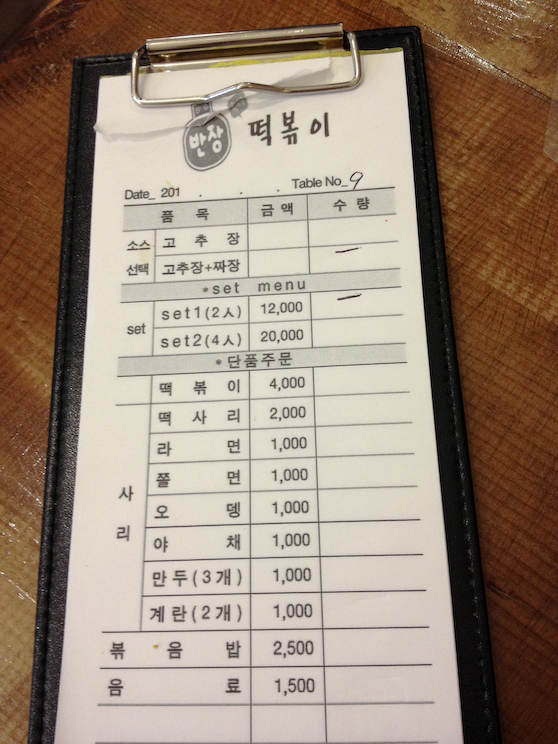 반장 떡볶이
Date_ 201 . . . Table No_9
품 목 금 액 수 량
소스 선택 고 추 장
고추장+짜장 ー
*set menu
set set1(2人) 12,000 ー
set2(4人) 20,000
*단품주문
떡 볶 이 4,000
사 리 떡 사 리 2,000
라 면 1,000
쫄 면 1,000
오 뎅 1,000
야 채 1,000
만 두 (3개) 1,000
계 란 (2개) 1,000
볶 음 밥 2,500
음 료 1,500